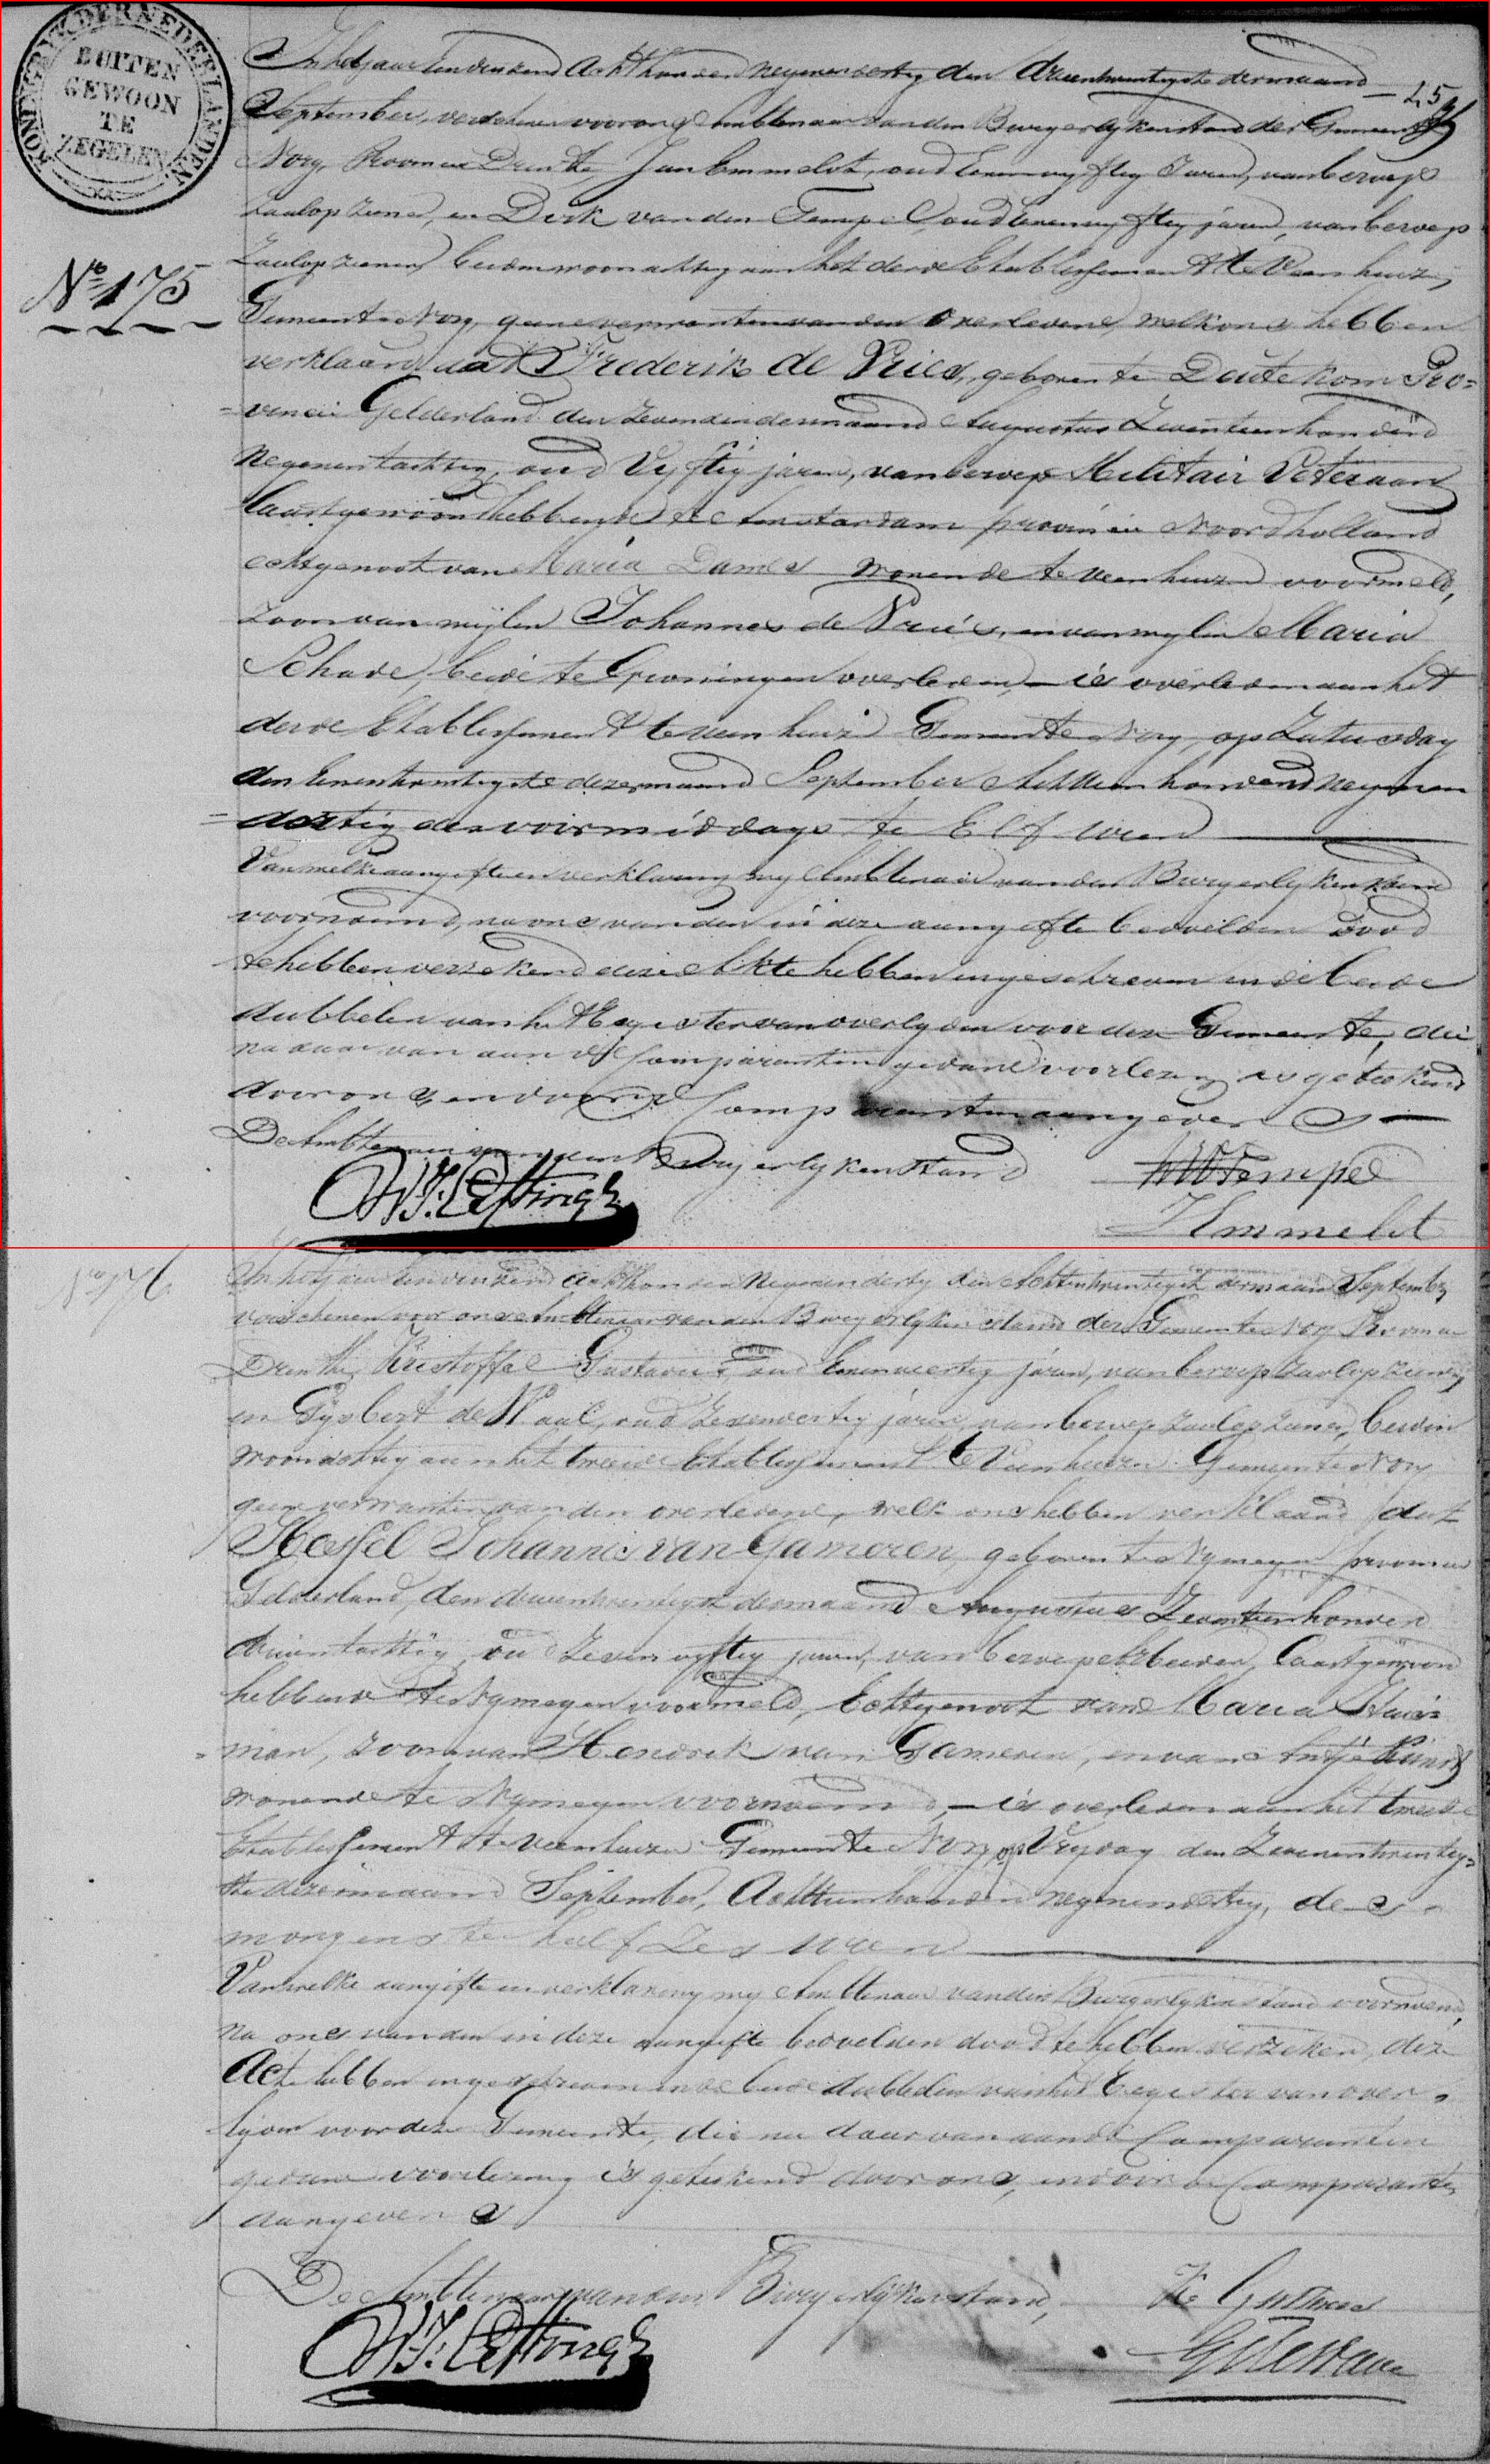 KONINGRYK DER NEDERLANDEN
BUITEN
GEWOON
TE
ZEGELEN
In het jaar Eenduizend Achthonderd negenendertig den drieentwintigste dermaand
45
September, verschenen voor ons Ambtenaar van den Burgerlyken stand der Gemeente
Norg, Provincie Drenthe, Jan Emmelot, oud Eenenvyftig Jaren, van beroep
Zaalopziener, en Dirk van den Tempel, oud Eenenvyftig jaren, van beroep
No 175
Zaalopziener, beiden woonachtig aan het derde Etablissement te Veenhuizen,
Gemeente Norg, geene verwanten van den Overledene, welke ons hebben
verklaard, dat Frederik de Vries, geboren te Deutekom Pro=
=vincie Gelderland den Zevenden dermaand Augustus Zeventienhonderd
Negenentachtig, oud Vyftig jaren, van beroep Militair Veteraan
laatst gewoond hebbende te Amsterdam provincie Noordholland
echtgenoot van Maria Dames wonende te Veenhuizen voormeld,
Zoon van wijlen Johannes de Vries, en van wylen Maria
Schade, beide te Groningen overleden, — is overleden aan het
derde Etablissement te Veenhuizen Gemeente Norg, op Zaturdag
den Eenentwintigste dezer maand September Achttienhonderd negenen
=dertig des voormiddags te Elf uren
Van welke aangifte en verklaring wy Ambtenaar van den Burgerlyken stand
voornoemd, na ons van den in deze aangifte bedoelden dood
te hebben verzekerd deze Akte hebben ingeschreven in de beide
dubbelen van het Register van overlyden voor deze Gemeente, die
na daar van aan de Comparanten gedane voorlezing is getekend
door ons en door de Comparanten aangevers —
De Ambtenaar van den Burgerlyken Stand
Tempel
W.J. Lefsingh
J Emmelot
No 176
In het jaar Eenduizend Achthonderd Negenendertig den Achtentwintigste dermaand September,
verschenen voor ons Ambtenaar van den Burgerlyken stand der Gemeente Norg Provincie
Drenthe, Kristoffel Gustavus, oud Eenenveertig jaren, van beroep Zaalopziener,
en Gysbert de Waal, oud Zevenveertig jaren, van beroep zaalopziener, beiden
woonachtig aan het tweede Etablissement te Veenhuizen Gemeente Norg
geene verwanten van den overledene, welke ons hebben verklaard dat
Hessel Johannes van Gameren, geboren te Nymegen provincie
Gelderland, den drieentwintigste dermaand Augustus Zeventienhonderd
drieentachtig, oud Zevenvyftig jaren, van beroep Arbeider, laatst gewoond
hebbende te Nymegen voormeld, Echtgenoot van Maria Huis=
=man, zoon van Hendrik van Gameren, en van Antje
wonende te Nymegen voornoemd, — is overleden aan het tweede
Etablissement te Veenhuizen Gemeente Norg, op Vrydag den Zevenentwintig=
ste dezer maand September, Achttienhonderd negenendertig, des
morgens te half Zes uren
Van welke aangifte en verklaring wy Ambtenaar van den Burgerlyken stand voornoemd,
na ons van den in deze aangifte bedoelden dood te hebben verzekerd, deze
Acte hebben ingeschreven in de beide dubbelen van het Register van over=
lyden voor deze Gemeente, die na daar van aan de Comparanten
gedane voorlezing is getekend door ons, en door de Comparanten
aangevers
De Ambtenaar van den Burgerlyken stand,
W.J. Lefsingh